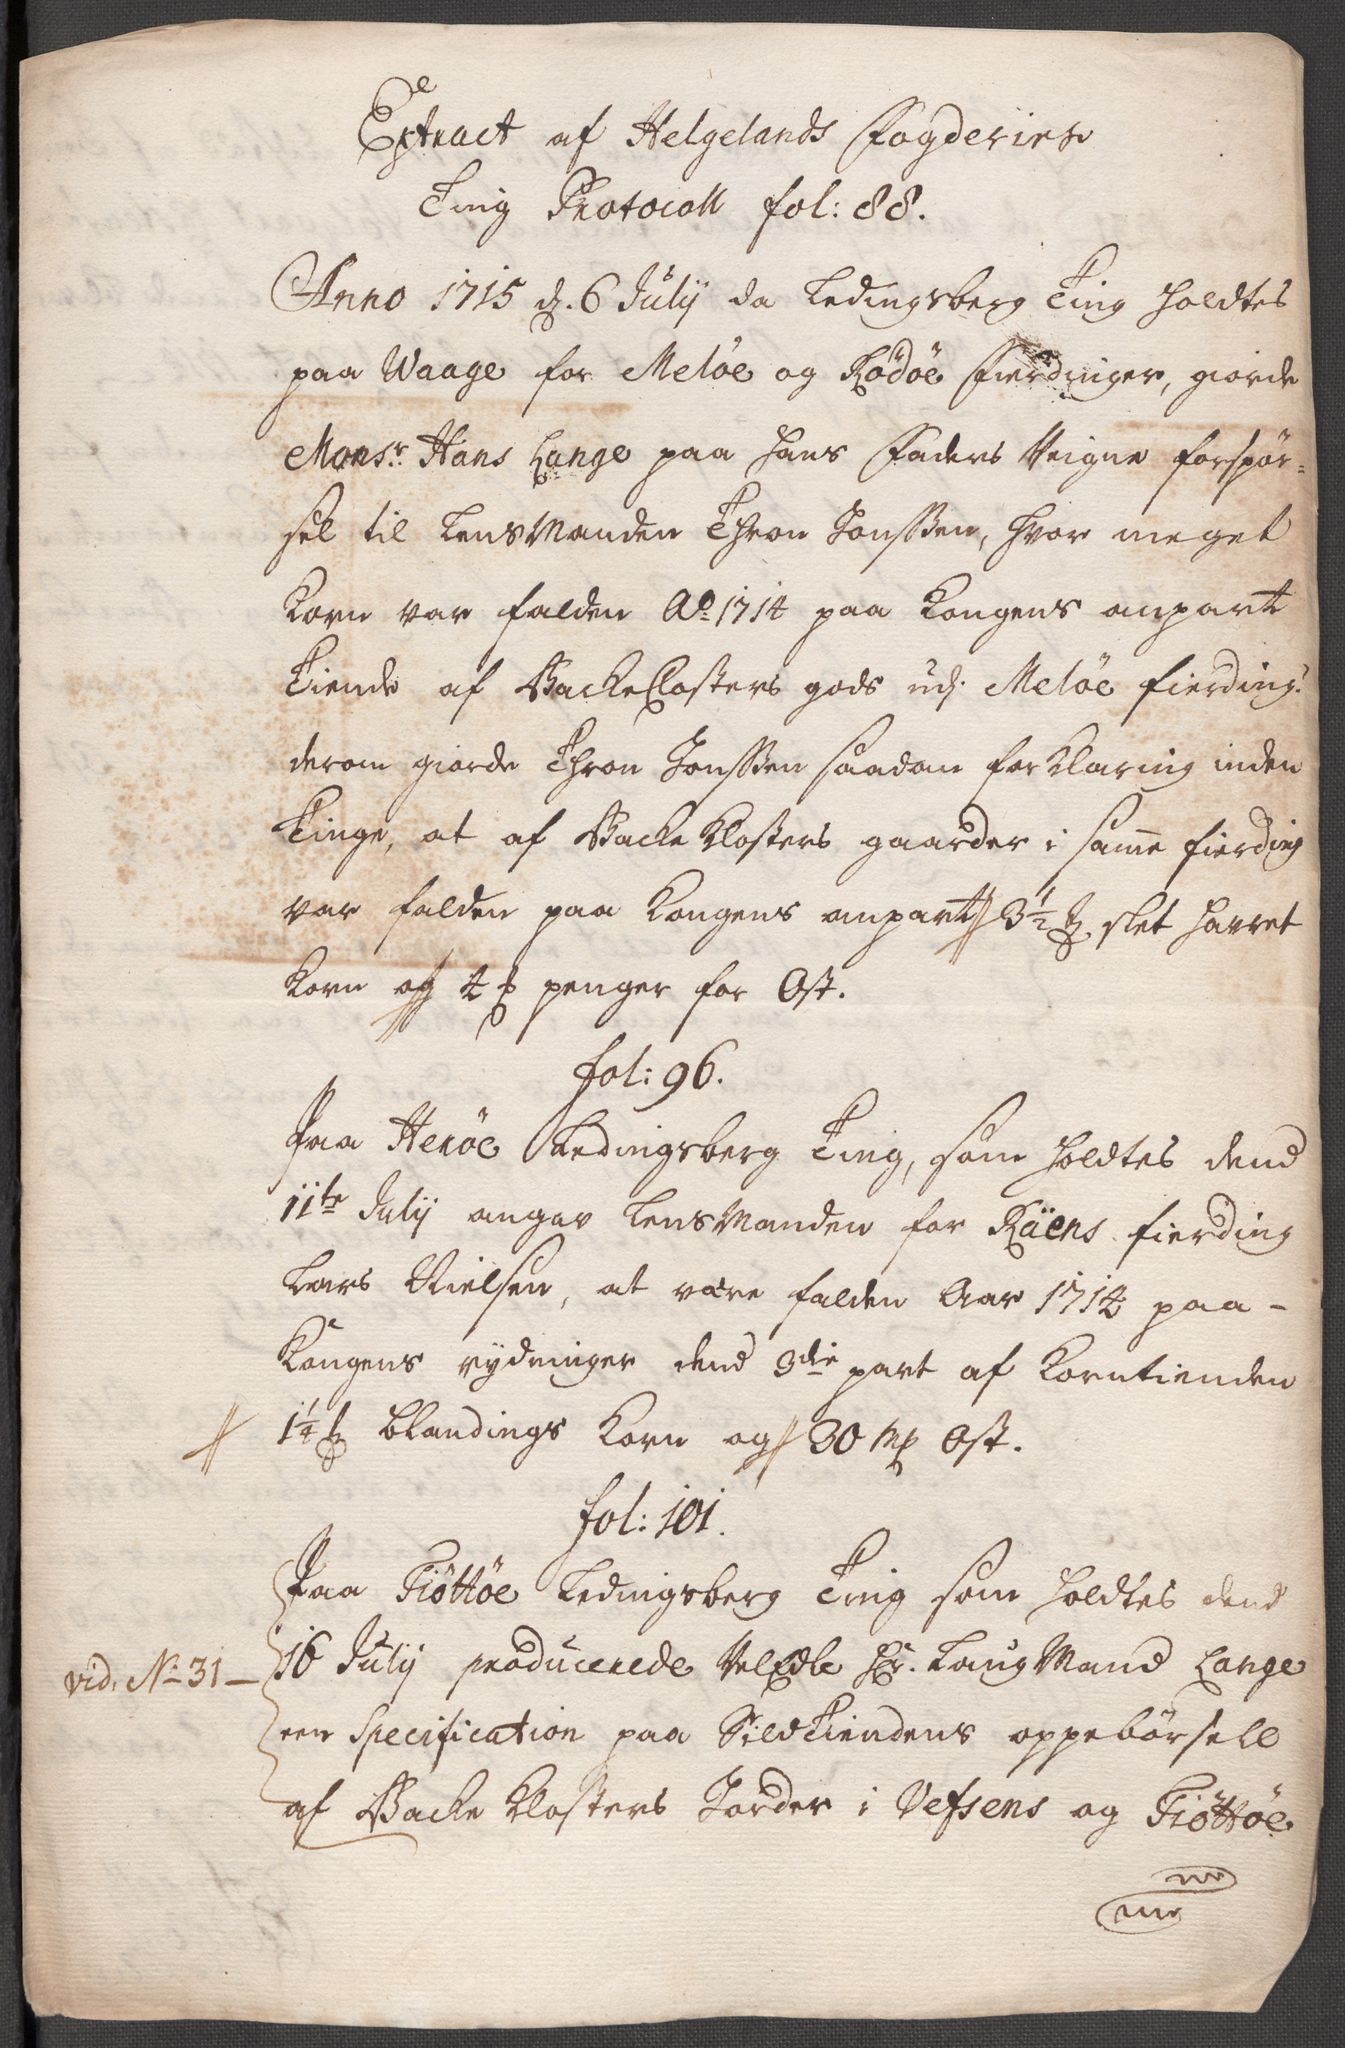 Extract af Helgelands Fogderies
Ting Protocoll fol: 88.
Anno 1715 d. 6 Julij da Ledingsberg Ting holdtes
paa Waage for Meløe og Rødøe fierdinger, giorde
Monsr. Hans Lange paa hans Faders Veigne forspør-
sel til LensManden Thron Jonssen, hvor meget
Korn var falden Ao. 1714 paa Kongens anpart
Tiende af BackeClosters gods udj Meløe fierding.
derom giorde Thron Jonssen saadan forklaring inden
Tinge, at af Backe Klosters gaarder i samme fierding
var falden paa Kongens anpart 3½ slet havret
Korn og 4 penger for Ost.
fol: 96.
Paa Herøe Ledingsberg Ting, som holdtes dend
11te Julij angav LensManden for Raens fierding
Lars Nielsen, at være falden Aar 1714 paa-
Kongens rydninger dend 3die part af Korntienden
1¼ blandings Korn og 30 mk Ost.
fol: 101.
Paa Tiøttøe Ledingsberg Ting som holdtes dend
vid. No 31 — 16 Julij producerede VelEdle Hr. LaugMand Lange
een Specification paa SildTiendens oppebørsell
af Backe Klosters Jorder i Vefsens og Tiøttøe